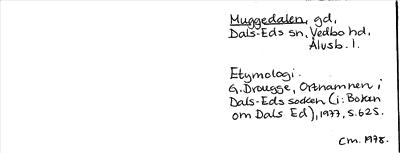 Muggedalen, gd,
Dals-Eds sn, Vedbo hd,
Älvsb. l.
Etymologi.
G. Drougge, Ortnamnen i
Dals-Eds socken (i: Boken
om Dals Ed), 1977, s. 625.
Cm. 1978.